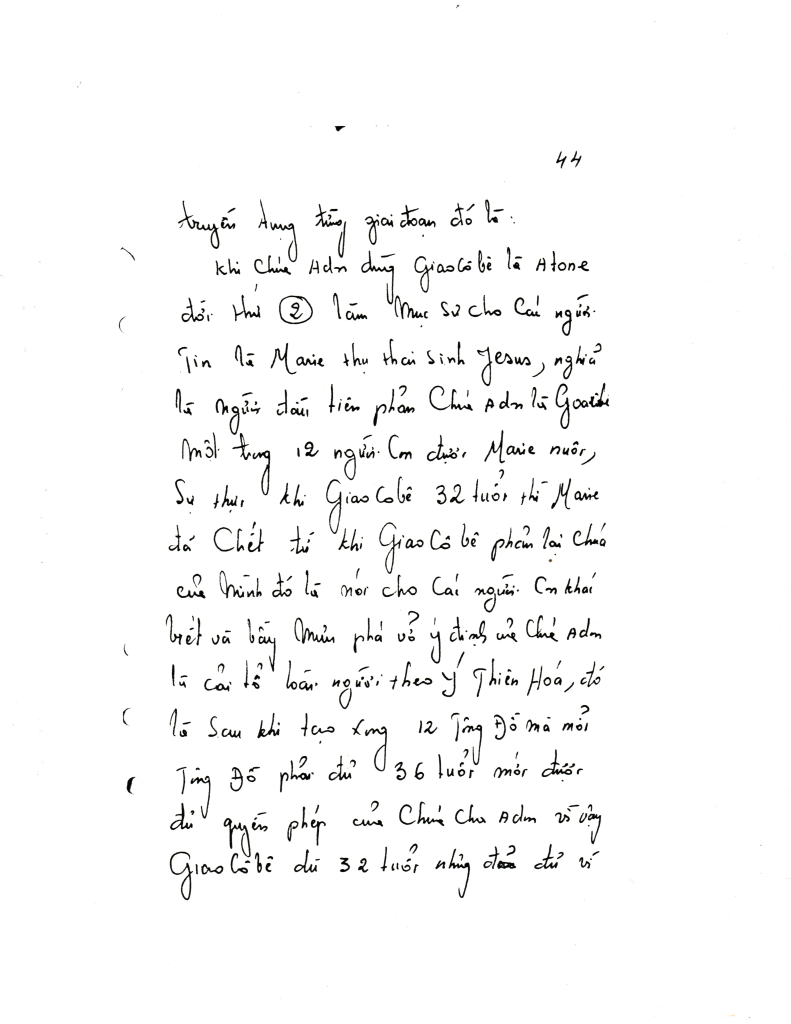 44
truyền dụng từng giai đoạn đó là:
khi Chúa Adn dùng Giao Cô bê là Atone
đời thứ 2 làm Mục Sư cho Cái người
Tin là Marie thụ thai sinh Jesus, nghiã
là người đầu tiên phản Chúa Adn là
Một trong 12 người Con được Marie nuôi,
Sự thực khi Giao Cô bê 32 tuổi thì Marie
đã Chết từ khi Giao Cô bê phản lại Chúa
của Mình đó là nói cho Cái người Con khác
biết và bây Mưu phá vỡ ý định của Chúa Adn
là cải tổ loài người theo Ý Thiên Hoá, đó
là Sau khi tạo xong 12 Tông Đồ mà mỗi
Tông Đồ phải đủ 36 tuổi mới được
đủ quyền phép của Chúa Cha Adn vì vậy
Giao Cô bê dù 32 tuổi nhưng đủ vì